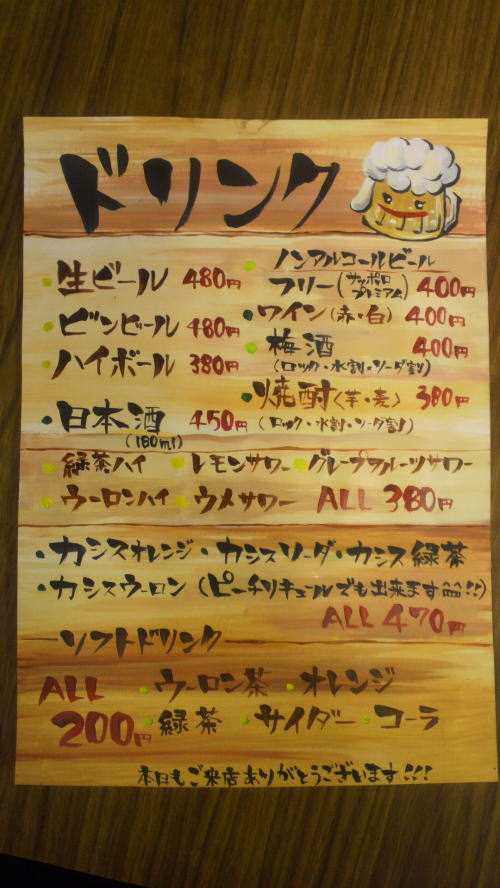 ドリンク
・生ビール 480円
・ビンビール 480円
・ハイボール 380円
・日本酒 450円
(180ml)
・ノンアルコールビール
フリー(サッポロプレミアム) 400円
・ワイン(赤・白) 400円
・梅酒 400円
(ロック・水割・ソーダ割)
・焼酎〈芋・麦〉 380円
(ロック・水割・ソーダ割)
・緑茶ハイ ・レモンサワー ・グレープフルーツサワー
・ウーロンハイ ・ウメサワー ALL 380円
・カシスオレンジ ・カシスソーダ ・カシス緑茶
・カシスウーロン (ピーチリキュールでも出来ます!!)
ALL 470円
ソフトドリンク
ALL 200円
・ウーロン茶 ・オレンジ
・緑茶 ・サイダー ・コーラ
本日もご来店ありがとうございます!!!